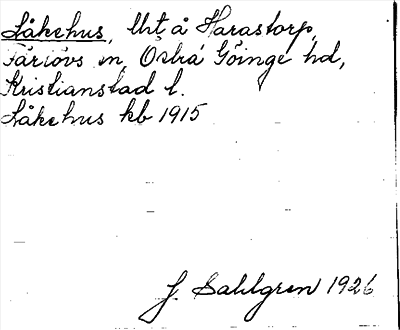 Låkehus, lht å Harastorp,
Färlövs sn, Östra Göinge hd,
Kristianstad l.
Låkehus kb 1915
J. Sahlgren 1926